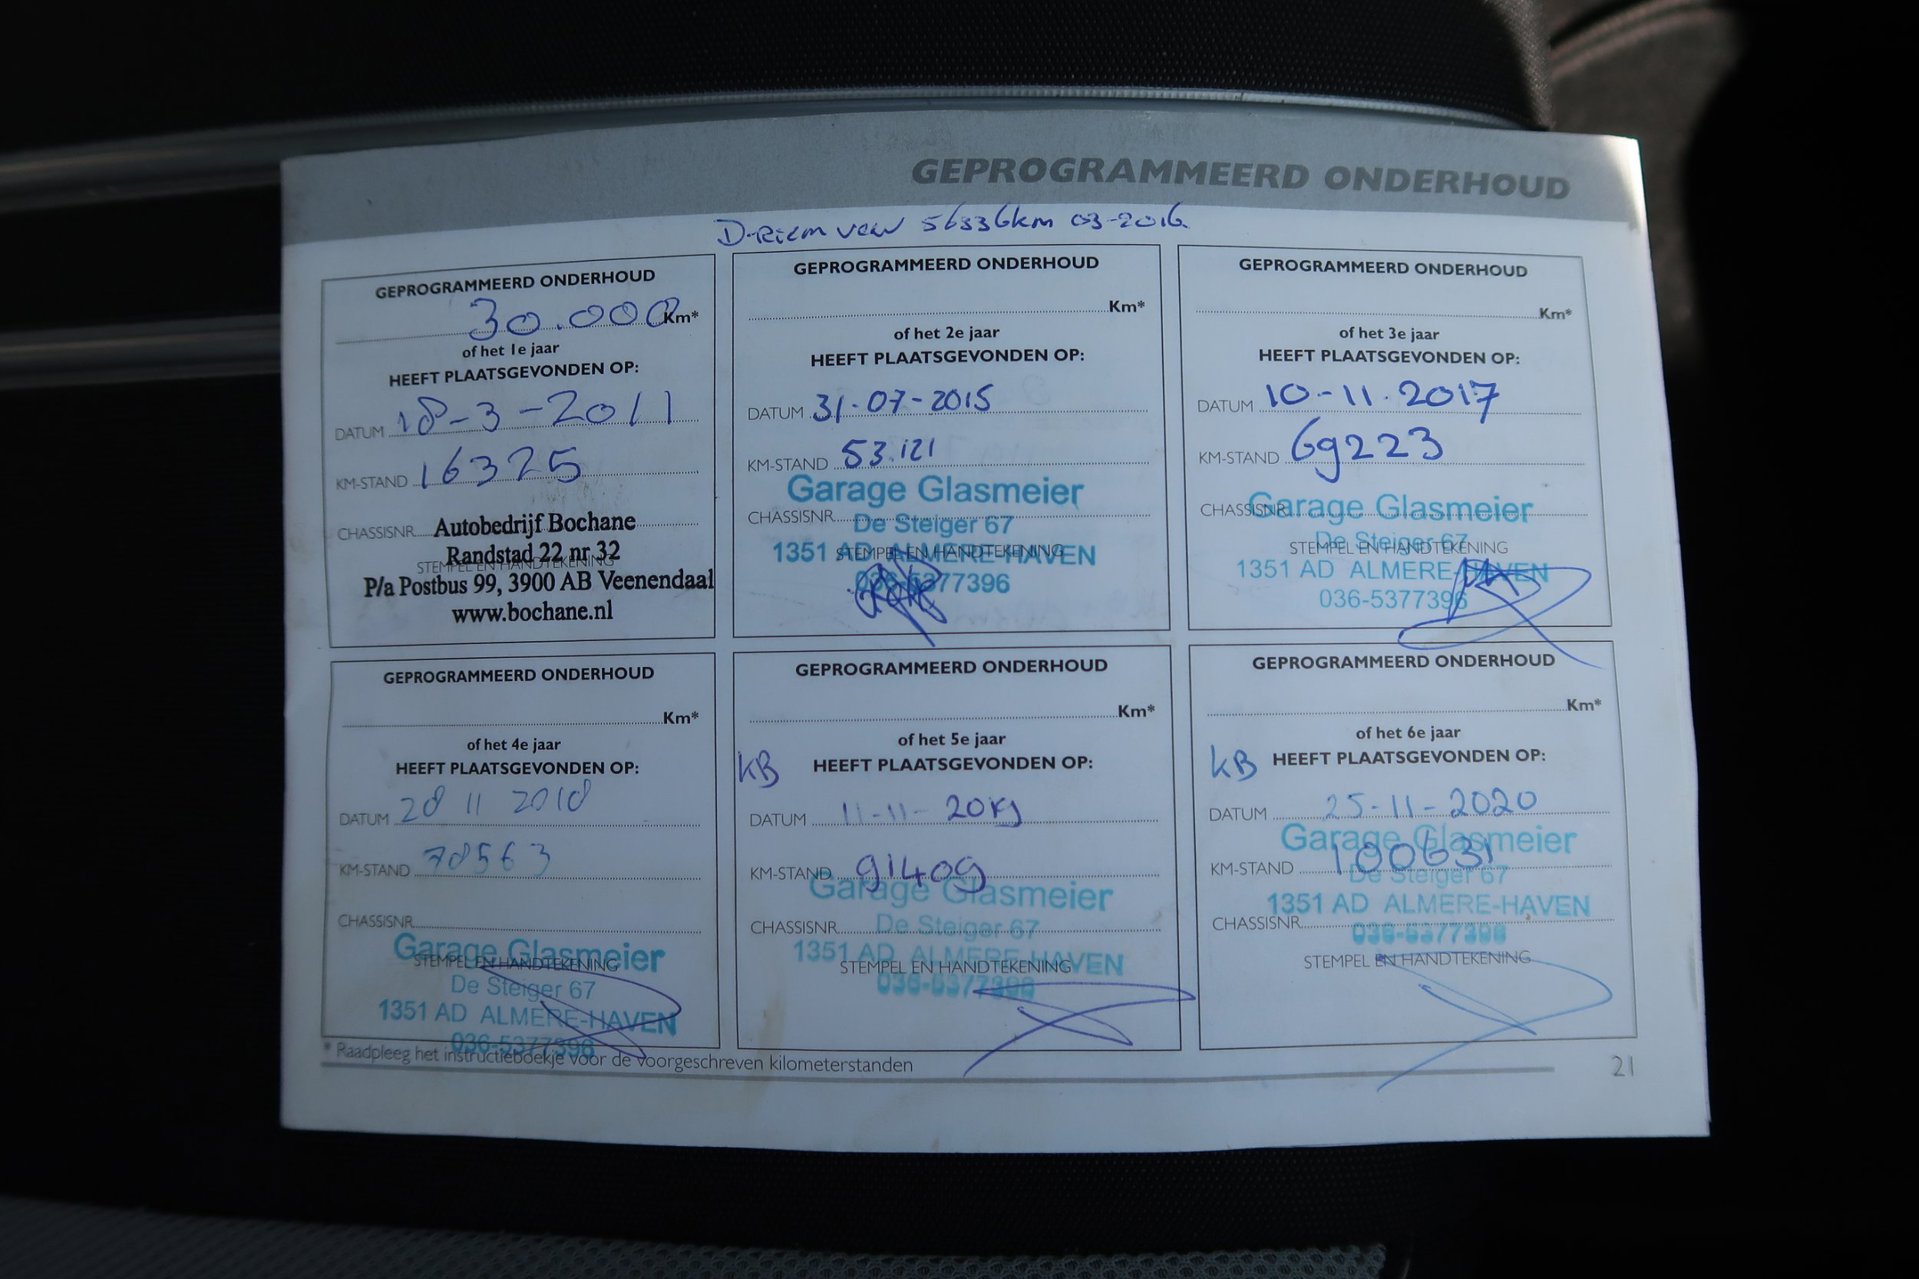 GEPROGRAMMEERD ONDERHOUD
D-Riem verv 56336km 03-2016.
GEPROGRAMMEERD ONDERHOUD
30.000 Km*
of het 1e jaar
HEEFT PLAATSGEVONDEN OP:
DATUM 18-3-2011
KM-STAND 16325
CHASSISNR
Autobedrijf Bochane
Randstad 22 nr 32
STEMPEL EN HANDTEKENING
P/a Postbus 99, 3900 AB Veenendaal
www.bochane.nl
GEPROGRAMMEERD ONDERHOUD
Km*
of het 2e jaar
HEEFT PLAATSGEVONDEN OP:
DATUM 31-07-2015
KM-STAND 53.121
Garage Glasmeier
CHASSISNR
De Steiger 67
STEMPEL EN HANDTEKENING
1351 AD ALMERE-HAVEN
036-5377396
GEPROGRAMMEERD ONDERHOUD
Km*
of het 3e jaar
HEEFT PLAATSGEVONDEN OP:
DATUM 10-11-2017
KM-STAND 69223
CHASSISNR
Garage Glasmeier
De Steiger 67
STEMPEL EN HANDTEKENING
1351 AD ALMERE-HAVEN
036-5377396
GEPROGRAMMEERD ONDERHOUD
Km*
of het 4e jaar
HEEFT PLAATSGEVONDEN OP:
DATUM 28 11 2018
KM-STAND 78563
CHASSISNR
Garage Glasmeier
STEMPEL EN HANDTEKENING
De Steiger 67
1351 AD ALMERE-HAVEN
036-5377396
GEPROGRAMMEERD ONDERHOUD
Km*
of het 5e jaar
KB HEEFT PLAATSGEVONDEN OP:
DATUM 11-11-2019
KM-STAND 91409
Garage Glasmeier
CHASSISNR
De Steiger 67
1351 AD ALMERE-HAVEN
STEMPEL EN HANDTEKENING
036-5377396
GEPROGRAMMEERD ONDERHOUD
Km*
of het 6e jaar
KB HEEFT PLAATSGEVONDEN OP:
DATUM 25-11-2020
Garage Glasmeier
KM-STAND 100631
De Steiger 67
1351 AD ALMERE-HAVEN
CHASSISNR
036-5377396
STEMPEL EN HANDTEKENING
* Raadpleeg het instructieboekje voor de voorgeschreven kilometerstanden
21